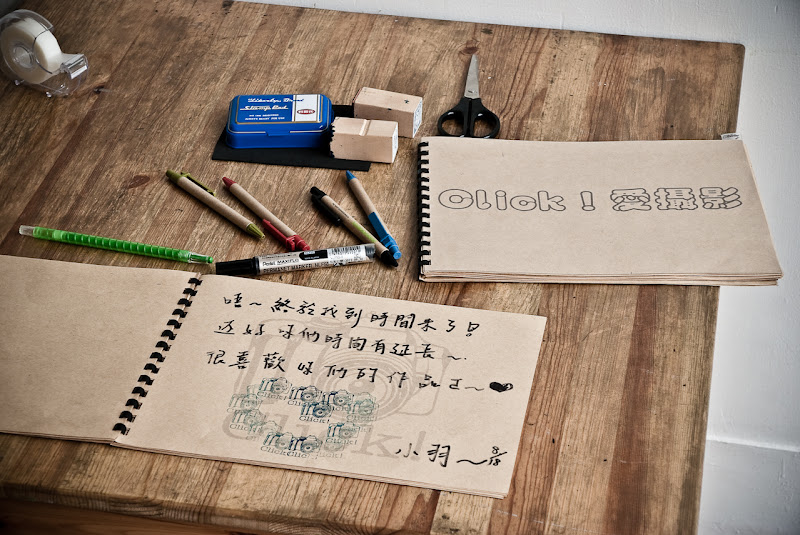 Stamp Pad
Click！愛攝影
Pentel MAXIFLO
哇～終於找到時間來了!
還好妳們時間有延長～.
很喜歡妳們的作品ㄛ～♥
Click!
小羽～8/18